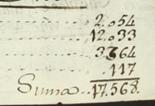 2.054
12.033
3364
117
Suma 17.568.